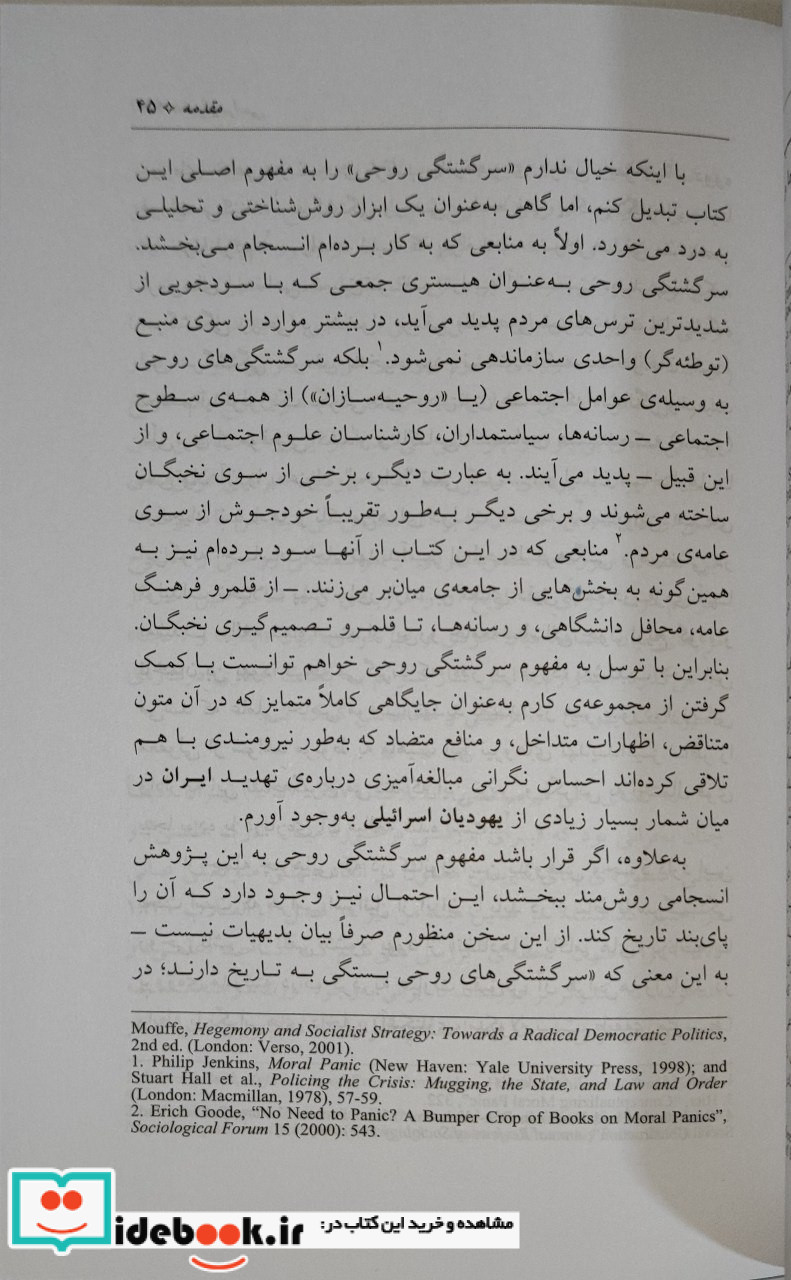 مقدمه ✧ ۴۵
با اینکه خیال ندارم «سرگشتگی روحی» را به مفهوم اصلی این
کتاب تبدیل کنم، اما گاهی به‌عنوان یک ابزار روش‌شناختی و تحلیلی
به درد می‌خورد. اولاً به منابعی که به کار برده‌ام انسجام می‌بخشد.
سرگشتگی روحی به‌عنوان هیستری جمعی که با سودجویی از
شدیدترین ترس‌های مردم پدید می‌آید، در بیشتر موارد از سوی منبع
(توطئه‌گر) واحدی سازماندهی نمی‌شود.۱ بلکه سرگشتگی‌های روحی
به وسیله‌ی عوامل اجتماعی (یا «روحیه‌سازان») از همه‌ی سطوح
اجتماعی – رسانه‌ها، سیاستمداران، کارشناسان علوم اجتماعی، و از
این قبیل – پدید می‌آیند. به عبارت دیگر، برخی از سوی نخبگان
ساخته می‌شوند و برخی دیگر به‌طور تقریباً خودجوش از سوی
عامه‌ی مردم.۲ منابعی که در این کتاب از آنها سود برده‌ام نیز به
همین‌گونه به بخش‌هایی از جامعه‌ی میان‌بر می‌زنند. – از قلمرو فرهنگ
عامه، محافل دانشگاهی، و رسانه‌ها، تا قلمرو تصمیم‌گیری نخبگان.
بنابراین با توسل به مفهوم سرگشتگی روحی خواهم توانست با کمک
گرفتن از مجموعه‌ی کارم به‌عنوان جایگاهی کاملاً متمایز که در آن متون
متناقض، اظهارات متداخل، و منافع متضاد که به‌طور نیرومندی با هم
تلاقی کرده‌اند احساس نگرانی مبالغه‌آمیزی درباره‌ی تهدید ایران در
میان شمار بسیار زیادی از یهودیان اسرائیلی به‌وجود آورم.
به‌علاوه، اگر قرار باشد مفهوم سرگشتگی روحی به این پژوهش
انسجامی روش‌مند ببخشد، این احتمال نیز وجود دارد که آن را
پای‌بند تاریخ کند. از این سخن منظورم صرفاً بیان بدیهیات نیست –
به این معنی که «سرگشتگی‌های روحی بستگی به تاریخ دارند؛ در
Mouffe, Hegemony and Socialist Strategy: Towards a Radical Democratic Politics,
2nd ed. (London: Verso, 2001).
1. Philip Jenkins, Moral Panic (New Haven: Yale University Press, 1998); and
Stuart Hall et al., Policing the Crisis: Mugging, the State, and Law and Order
(London: Macmillan, 1978), 57-59.
2. Erich Goode, “No Need to Panic? A Bumper Crop of Books on Moral Panics”,
Sociological Forum 15 (2000): 543.
idebook.ir مشاهده و خرید این کتاب در: